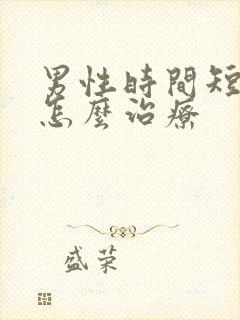 男性時間短
怎麼治療
盛荣